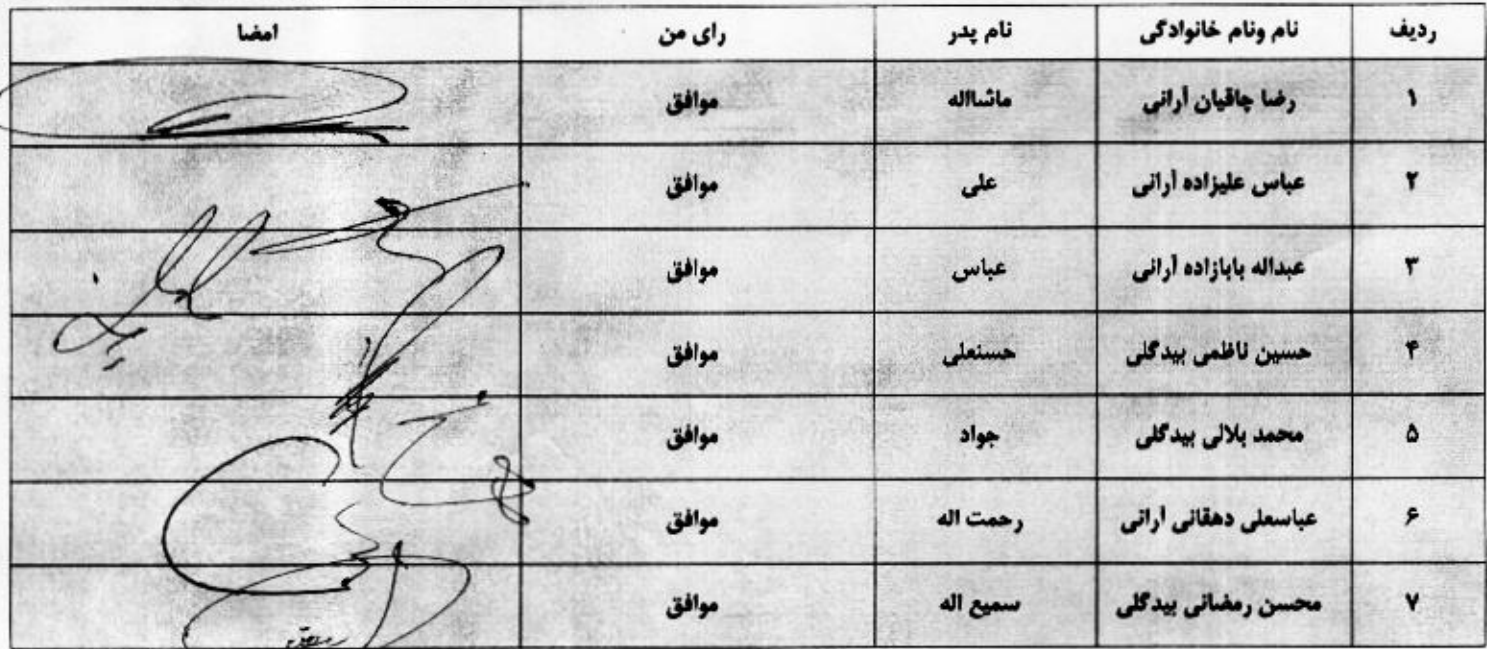 ردیف نام ونام خانوادگی نام پدر رای من امضا
۱ رضا چاقیان آرانی ماشااله موافق
۲ عباس علیزاده آرانی علی موافق
۳ عبداله بابازاده آرانی عباس موافق
۴ حسین ناظمی بیدگلی حسنعلی موافق
۵ محمد بلالی بیدگلی جواد موافق
۶ عباسعلی دهقانی آرانی رحمت اله موافق
۷ محسن رمضانی بیدگلی سمیع اله موافق